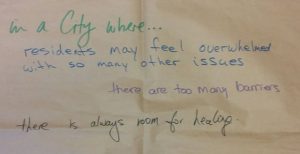 in a City where...
residents may feel overwhelmed
with so many other issues
there are too many barriers
there is always room for healing.